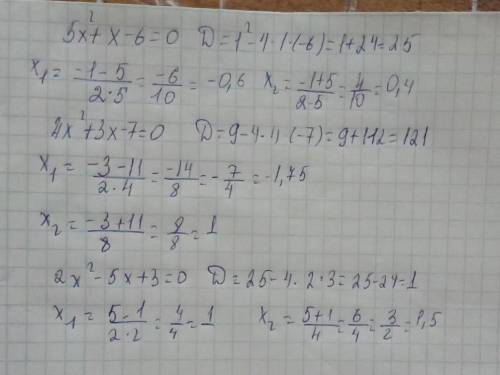 5x²+x-6=0 D=1²-4·1·(-6)=1+24=25
x₁=(-1-5)/(2·5)=-6/10=-0,6 x₂=(-1+5)/(2·5)=4/10=0,4
4x²+3x-7=0 D=9-4·4·(-7)=9+112=121
x₁=(-3-11)/(2·4)=-14/8=-7/4=-1,75
x₂=(-3+11)/8=8/8=1
2x²-5x+3=0 D=25-4·2·3=25-24=1
x₁=(5-1)/(2·2)=4/4=1 x₂=(5+1)/4=6/4=3/2=1,5